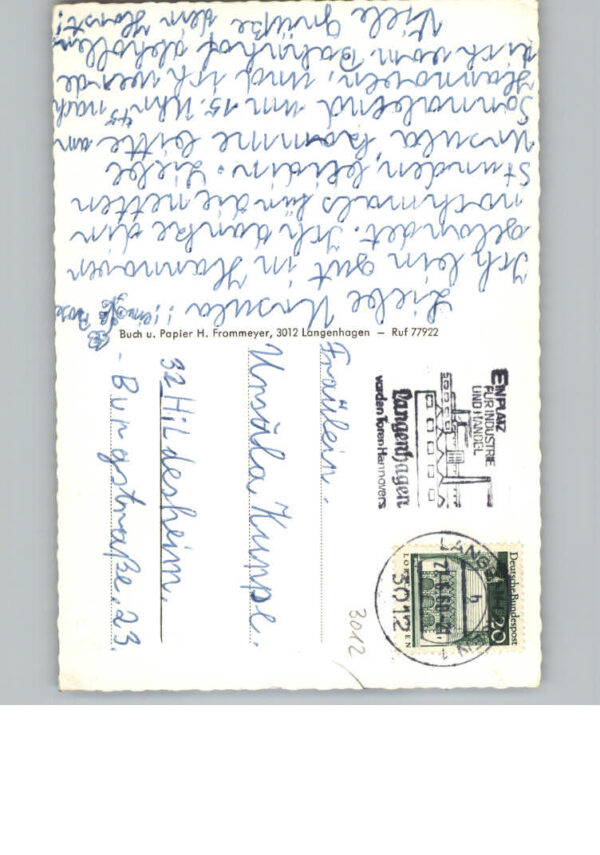 Liebe Ursula!
Ich bin gut in Hannover
gelandet. Ich danke dir
nochmals für die netten
Stunden, bei dir. Liebe
Ursula, komme bitte am
Sonnabend um 15.45 Uhr nach
Hannover, und ich werde
dich vom Bahnhof abhollen.
Viele Grüße dein Horst!
Buch u. Papier H. Frommeyer, 3012 Langenhagen – Ruf 77922
EIN PLATZ
FÜR INDUSTRIE
UND HANDEL
Langenhagen
vor den Toren Hannovers
Deutsche Bundespost
20
LORSCH HESSEN
LANGENHAGEN
3012
Fräulein.
Ursula Kumpe.
32 Hildesheim.
Burgstraße. 23.
3012